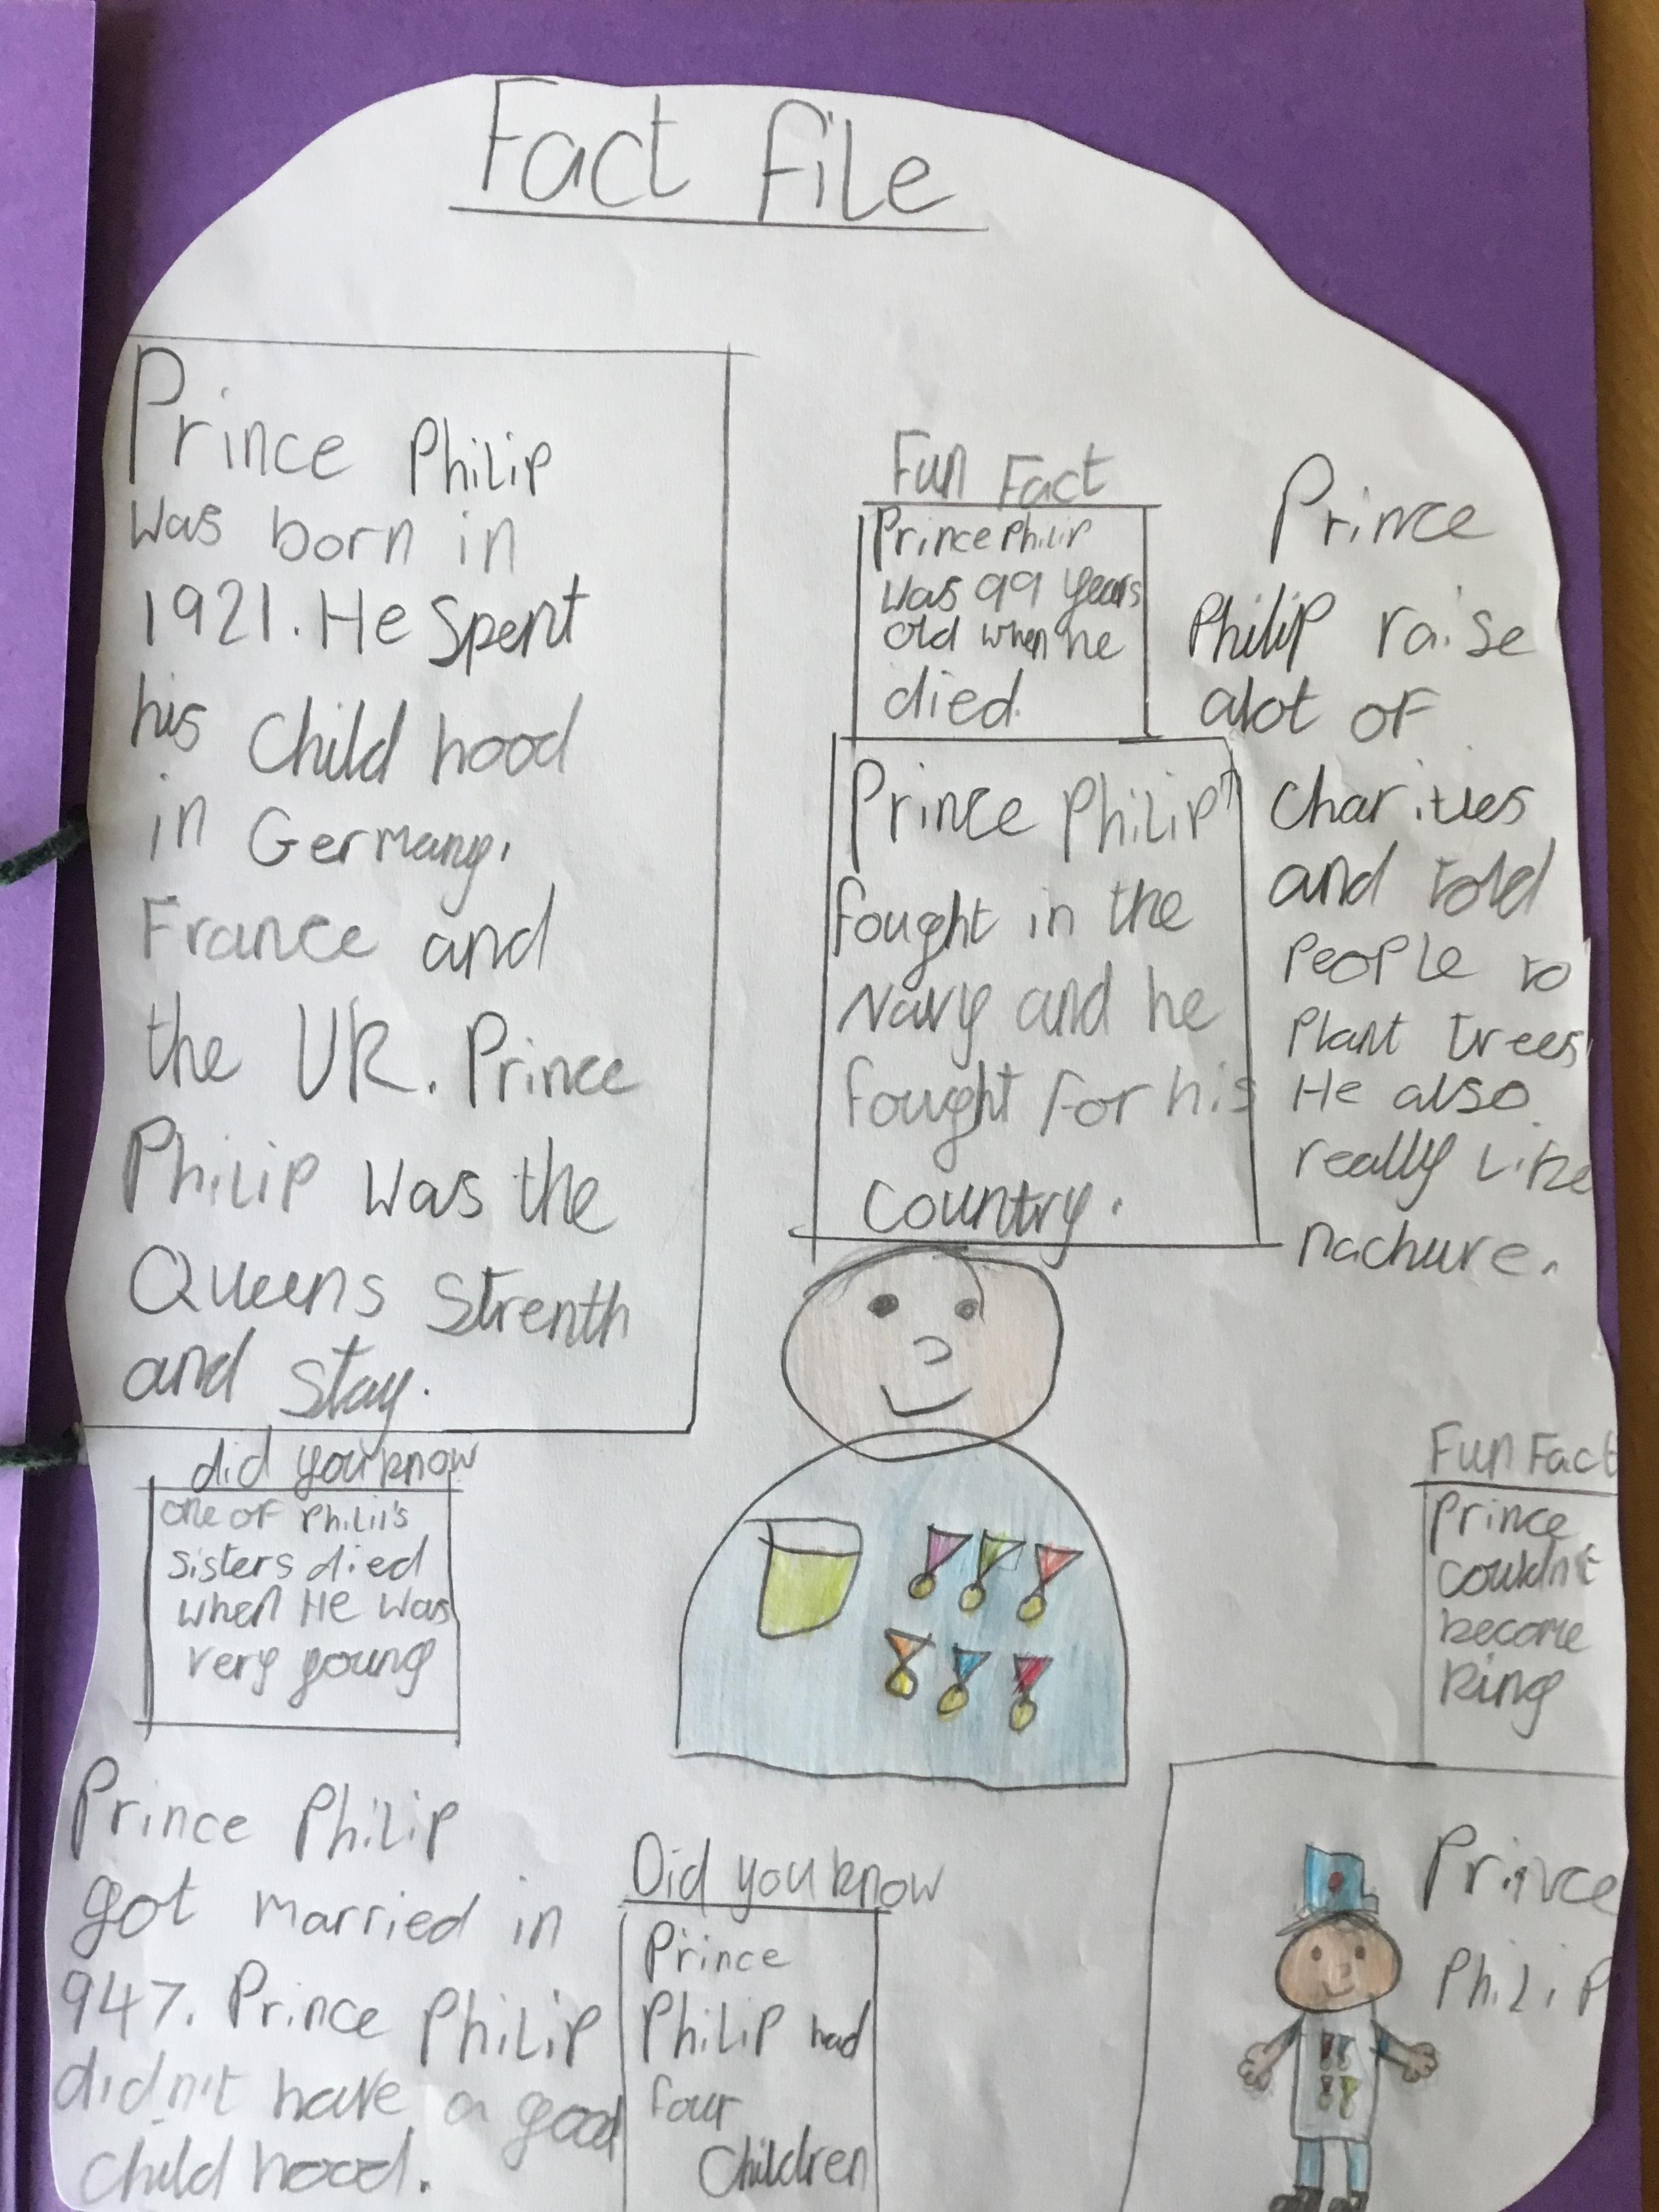 Fact File
Prince Philip
was born in
1921. He Spent
his Child hood
in Germany,
France and
the UK. Prince
Philip was the
Queens Strenth
and Stay.
Fun Fact
Prince Philip
was 99 years
old when he
died.
Prince Philip
fought in the
Navy and he
fought for his
country.
Prince
Philip raise
alot of
charities
and told
people to
plant trees
He also
really like
nachure.
did you know
one of Philii's
sisters died
when He was
very young
Fun Fact
Prince
couldn't
become
King
Prince Philip
got married in
947. Prince Philip
didn't have a good
child hood.
Did you know
Prince
Philip had
four
Children
Prince
Philip